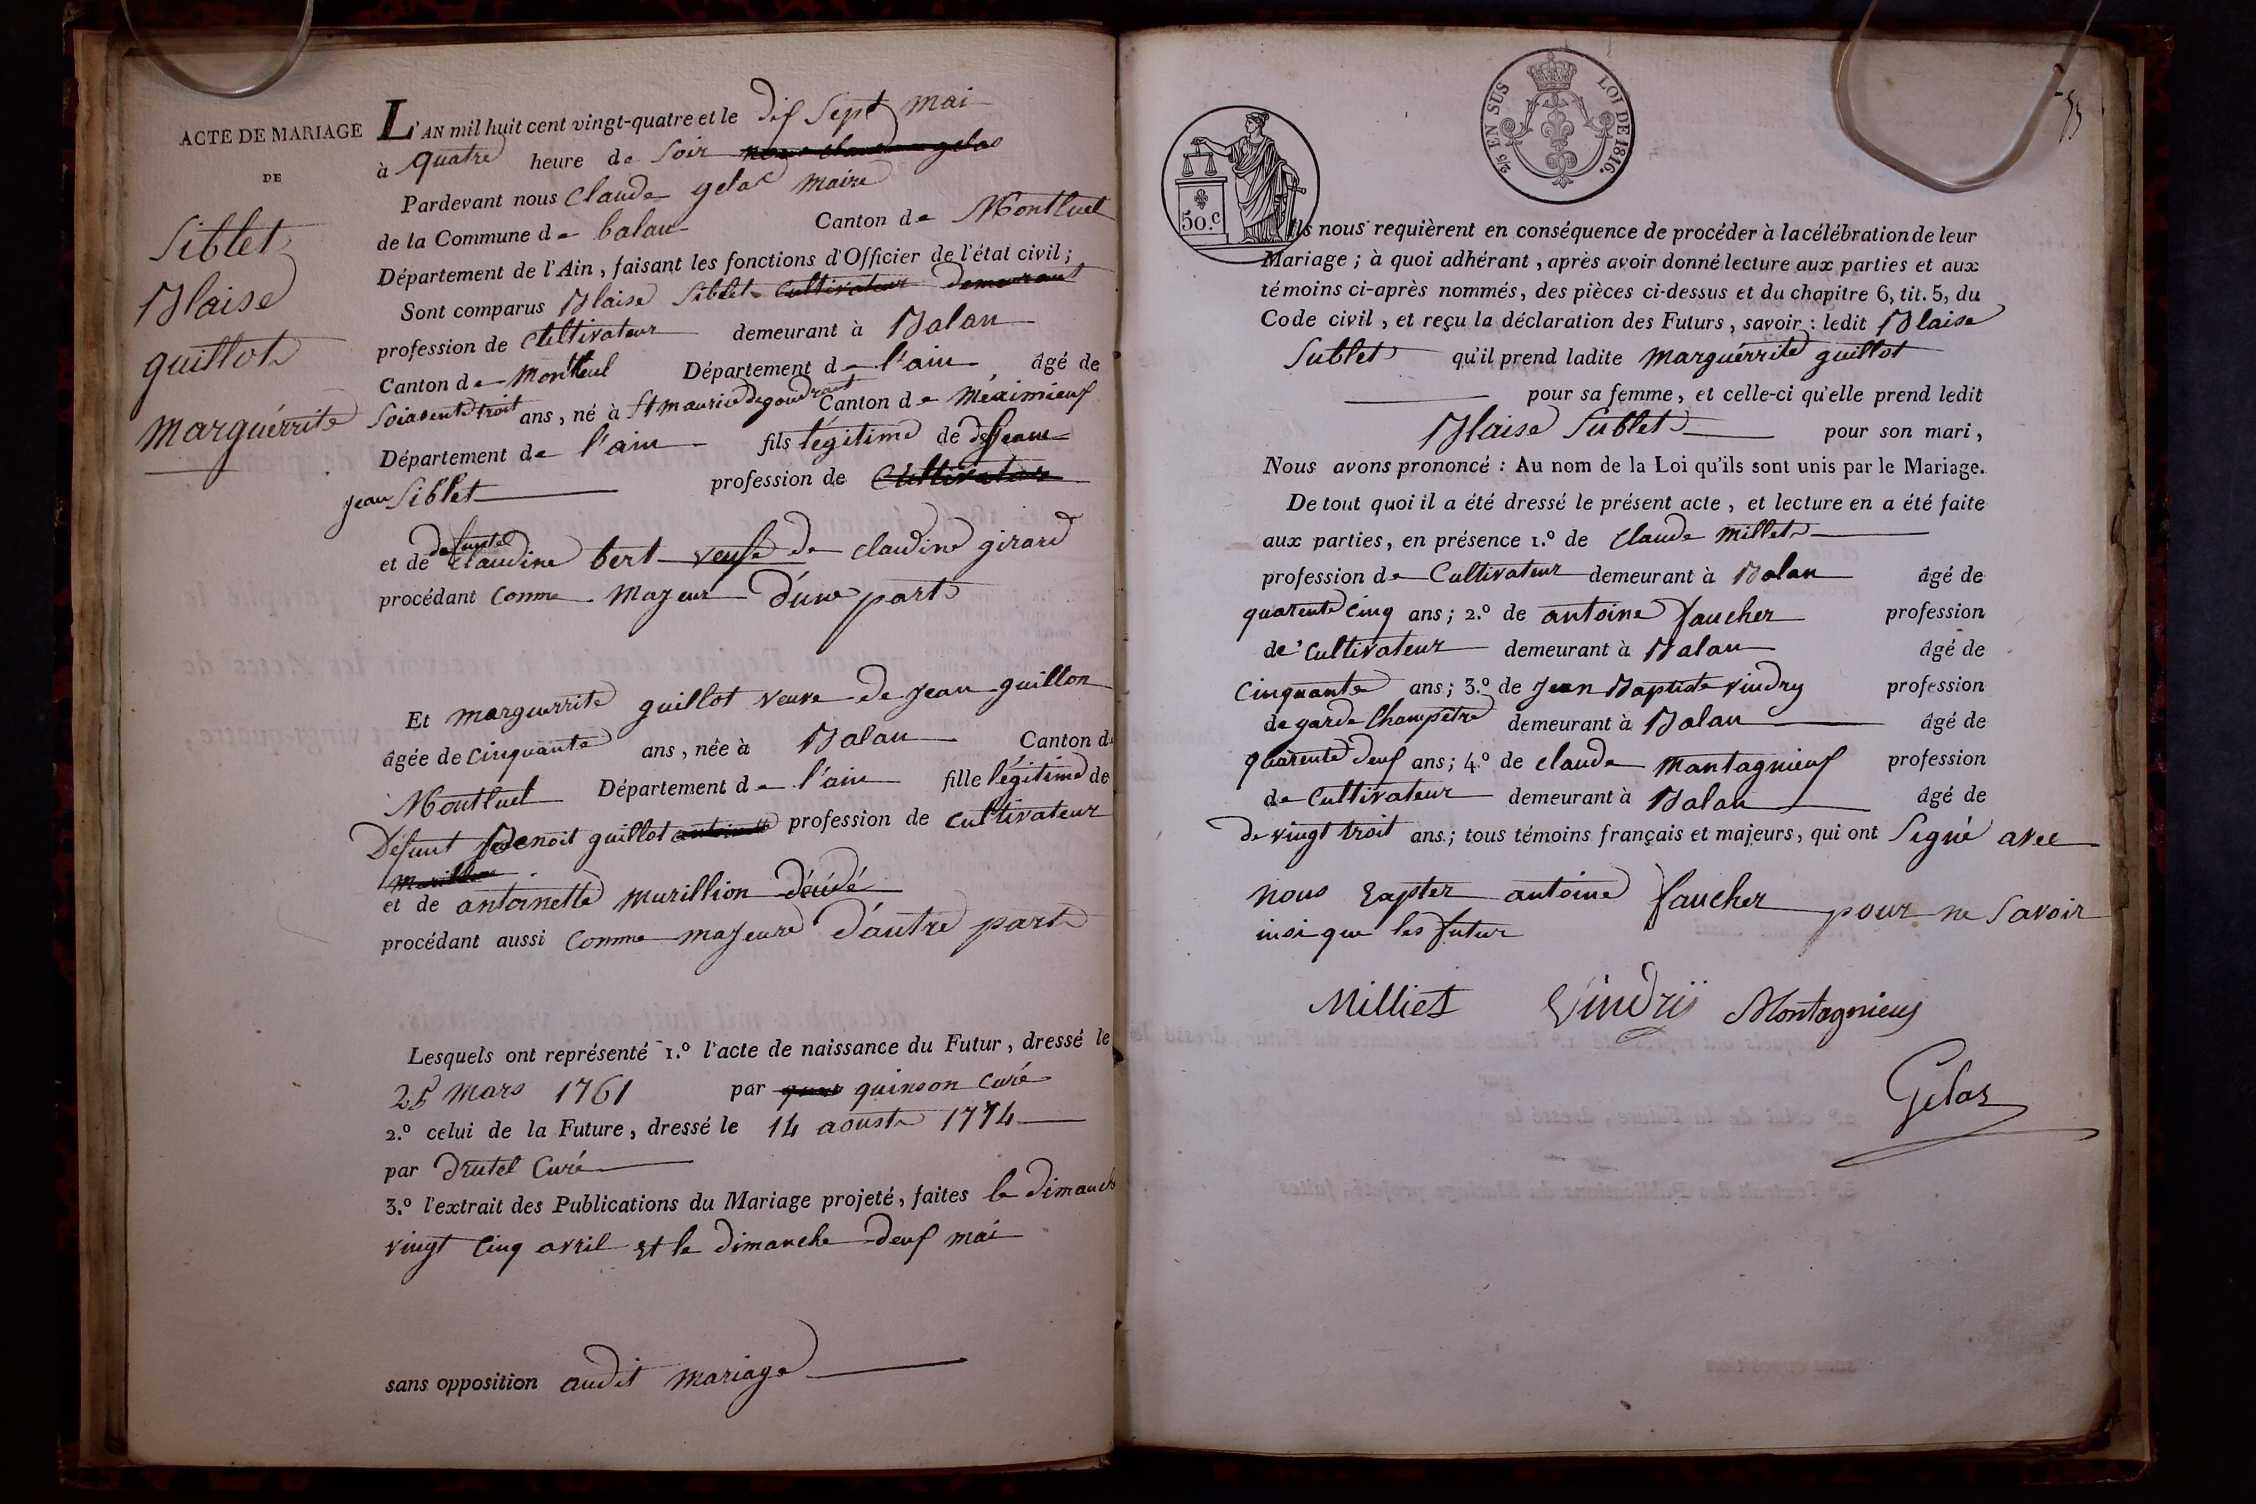 ACTE DE MARIAGE
DE
Siblet
Blaise
guillot
marguérrite
L'AN mil huit cent vingt-quatre et le dix sept mai
à quatre heure de soir
Pardevant nous Claude gelas maire
de la Commune de balan Canton de Montluel
Département de l'Ain, faisant les fonctions d'Officier de l'état civil;
Sont comparus Blaise Siblet Cultivateur demeurant
profession de Cultivateur demeurant à Balan
Canton de Montluel Département de l'ain âgé de
Soiasente troit ans, né à St maurice de gourdant Canton de Méximieux
Département de l'ain fils légitime de
jean Siblet profession de Cultivateur
et de defunte Claudine bert veuf de claudine girard
procédant Comme Majeur d'une part
Et marguerrite guillot veuve de jean guillon
âgée de cinquante ans, née à Balan Canton de
Montluel Département de l'ain fille légitime de
Défunt Benoit guillot antoinette profession de cultivateur
et de antoinette murillion décédé
procédant aussi Comme majeure d'autre part
Lesquels ont représenté 1.º l'acte de naissance du Futur, dressé le
25 mars 1761 par quinson Curé
2.º celui de la Future, dressé le 14 aoust 1774
par drutel Curé
3.º l'extrait des Publications du Mariage projeté, faites le dimanche
vingt cinq avril et le dimanche deux mai
sans opposition audit mariage
50.c
2/5 EN SUS
LOI DE 1816.
Ils nous requièrent en conséquence de procéder à la célébration de leur
Mariage; à quoi adhérant, après avoir donné lecture aux parties et aux
témoins ci-après nommés, des pièces ci-dessus et du chapitre 6, tit. 5, du
Code civil, et reçu la déclaration des Futurs, savoir: ledit Blaise
Sublet qu'il prend ladite marguérrite guillot
pour sa femme, et celle-ci qu'elle prend ledit
Blaise Sublet pour son mari,
Nous avons prononcé: Au nom de la Loi qu'ils sont unis par le Mariage.
De tout quoi il a été dressé le présent acte, et lecture en a été faite
aux parties, en présence 1.º de Claude Millet
profession de Cultivateur demeurant à Balan âgé de
quarente cinq ans; 2.º de antoine faucher profession
de Cultivateur demeurant à Balan âgé de
Cinquante ans; 3.º de Jean Baptiste vindry profession
de garde Champetre demeurant à Balan âgé de
quarente deux ans; 4.º de claude Mantagnieux profession
de Cultivateur demeurant à Balan âgé de
de vingt troit ans; tous témoins français et majeurs, qui ont Signé avec
nous Exapter antoine faucher pour ne Savoir
insi que les futur
Milliet Vindrÿ Montagnieux
Gelas